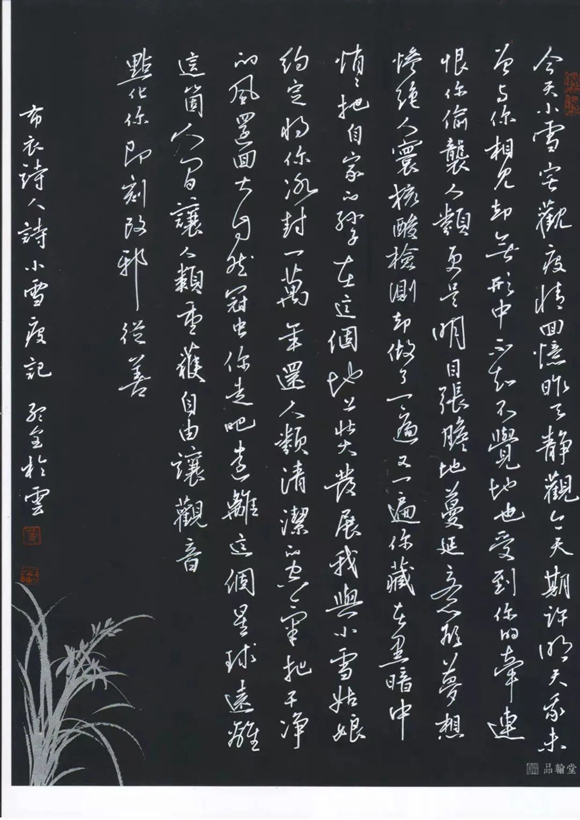 今天小雪宅觀疫情回憶昨天靜觀今天期許明天我未
曾与你相見却無形中不知不覺地也受到你的牽連
恨你偷襲人類更是明目張膽地蔓延意欲夢想
慘絕人寰核酸檢測却做了一遍又一遍你藏在黑暗中
悄悄把自家的孽子在這個地上壯大發展我與小雪姑娘
約定將你冰封一萬年還人類清潔的空氣把干净
的風罩面大自然冠中你走吧遠離這個星球遠離
這箇人間讓人類重獲自由讓觀音
點化你即刻改邪從善
布衣詩人詩小雪疫記 於雲
品翰堂